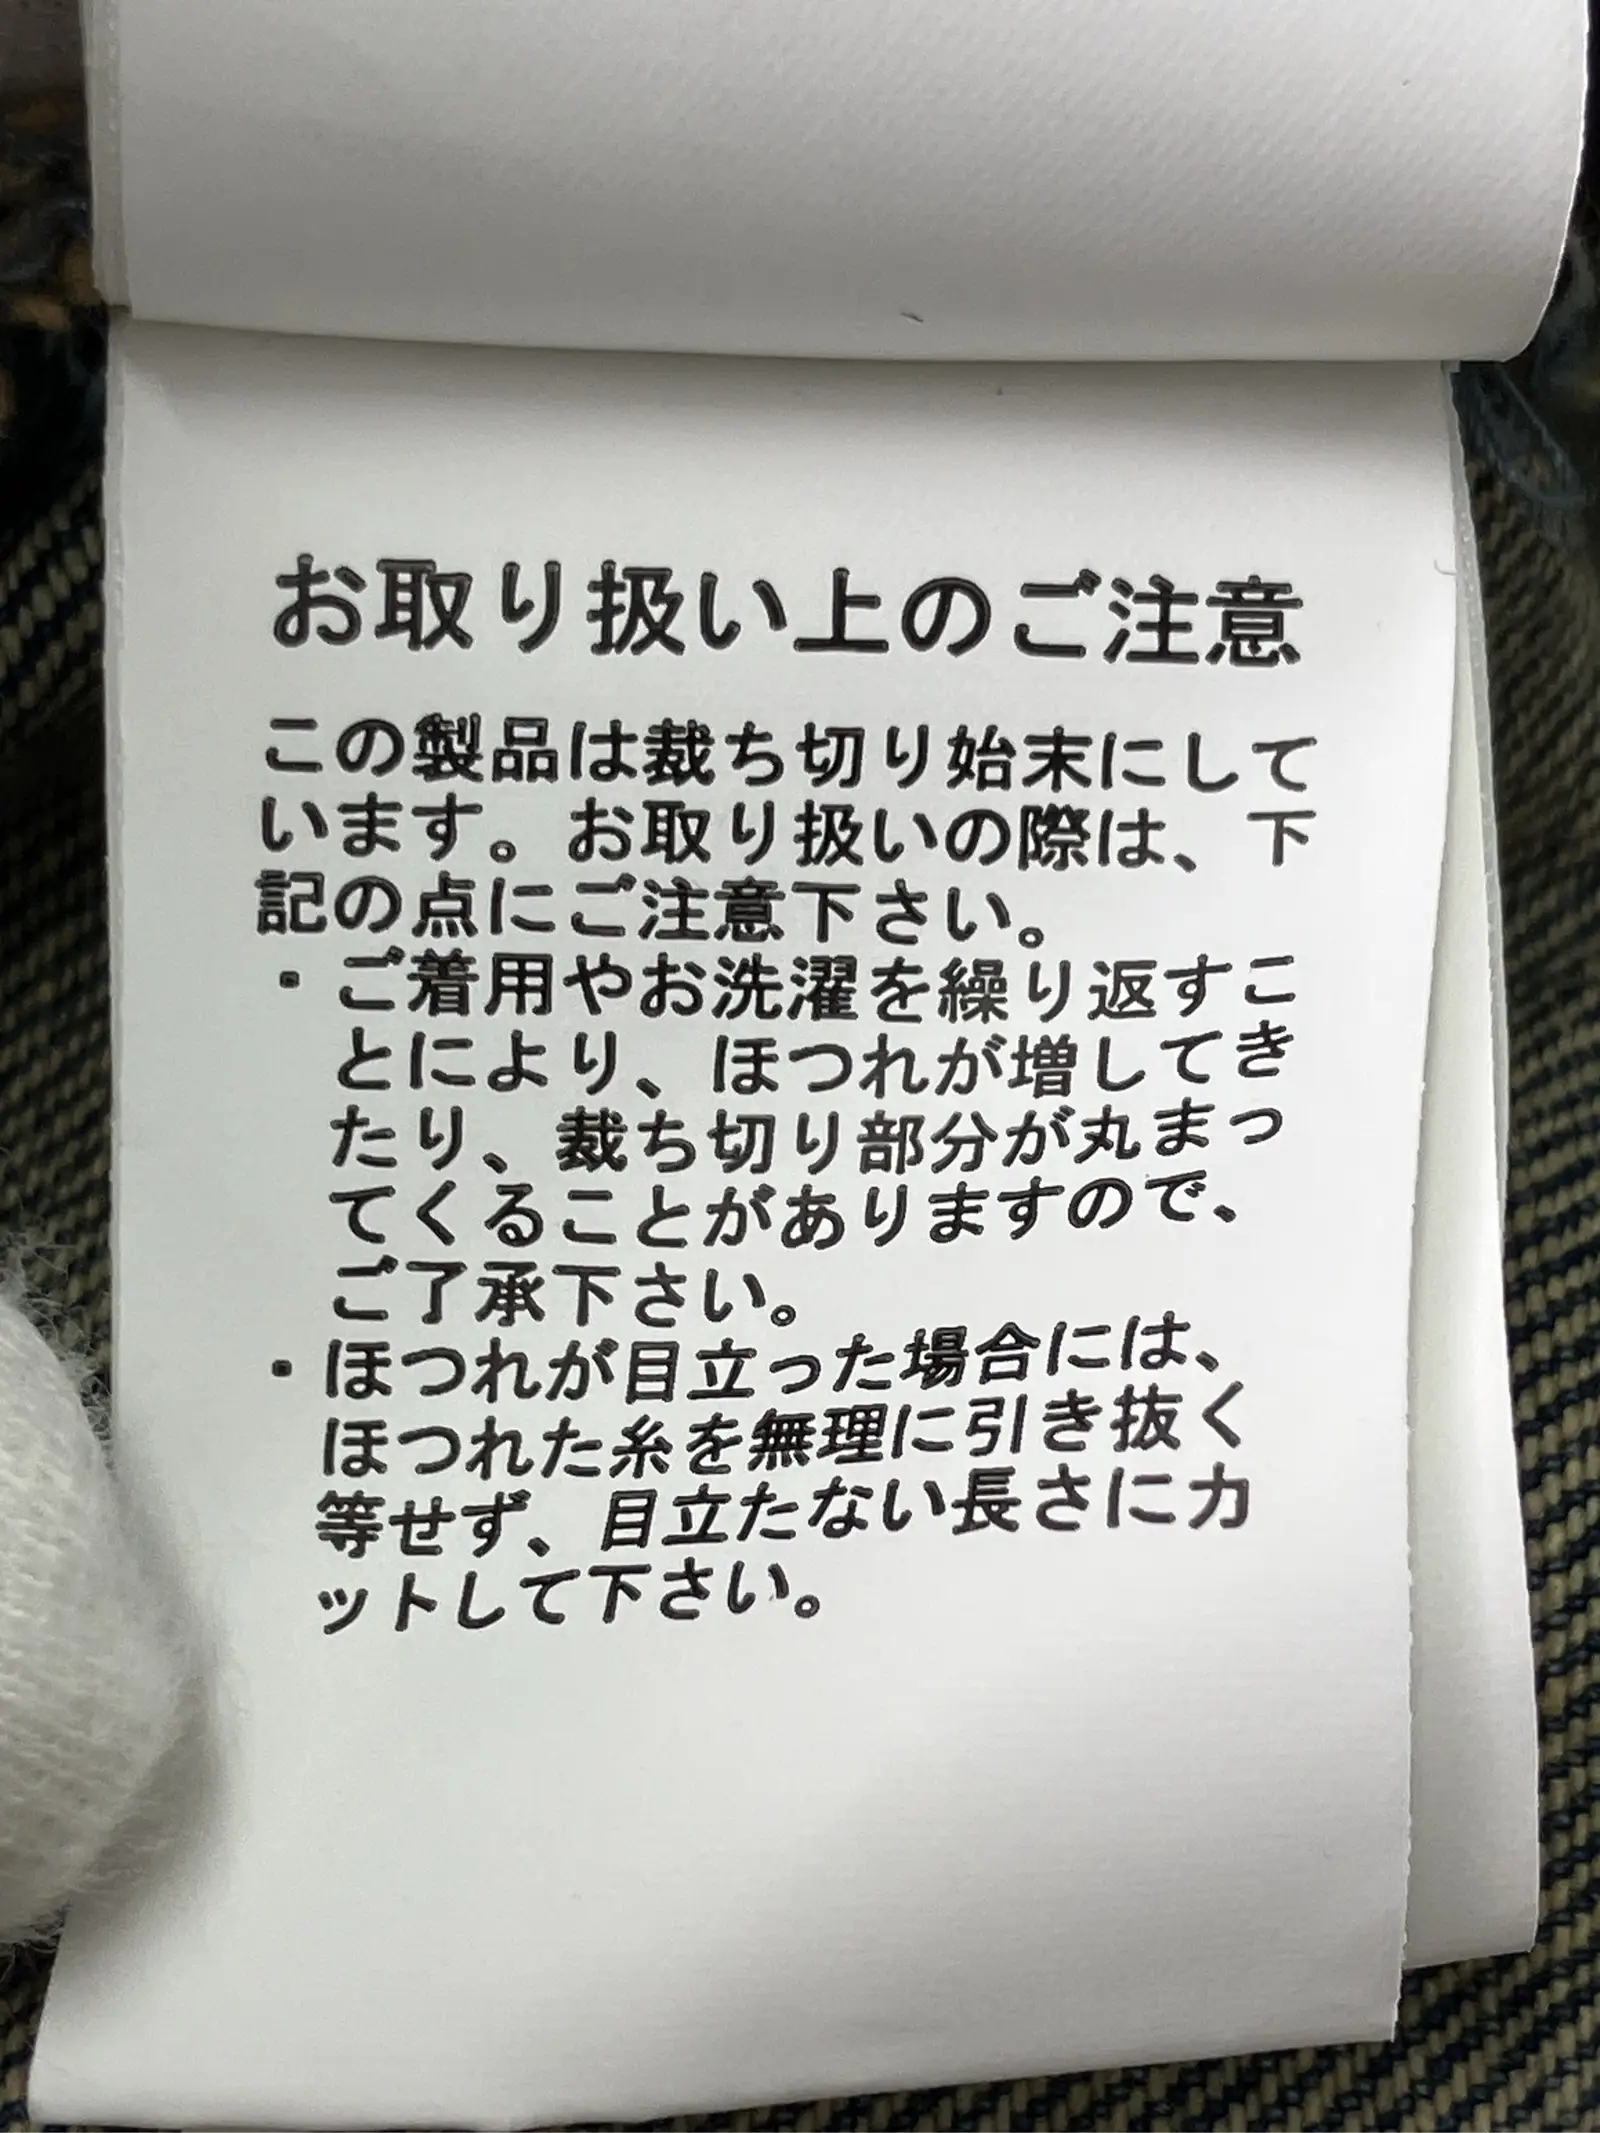 お取り扱い上のご注意
この製品は裁ち切り始末にして
います。お取り扱いの際は、下
記の点にご注意下さい。
・ご着用やお洗濯を繰り返すこ
とにより、ほつれが増してき
たり、裁ち切り部分が丸まっ
てくることがありますので、
ご了承下さい。
・ほつれが目立った場合には、
ほつれた糸を無理に引き抜く
等せず、目立たない長さにカ
ットして下さい。